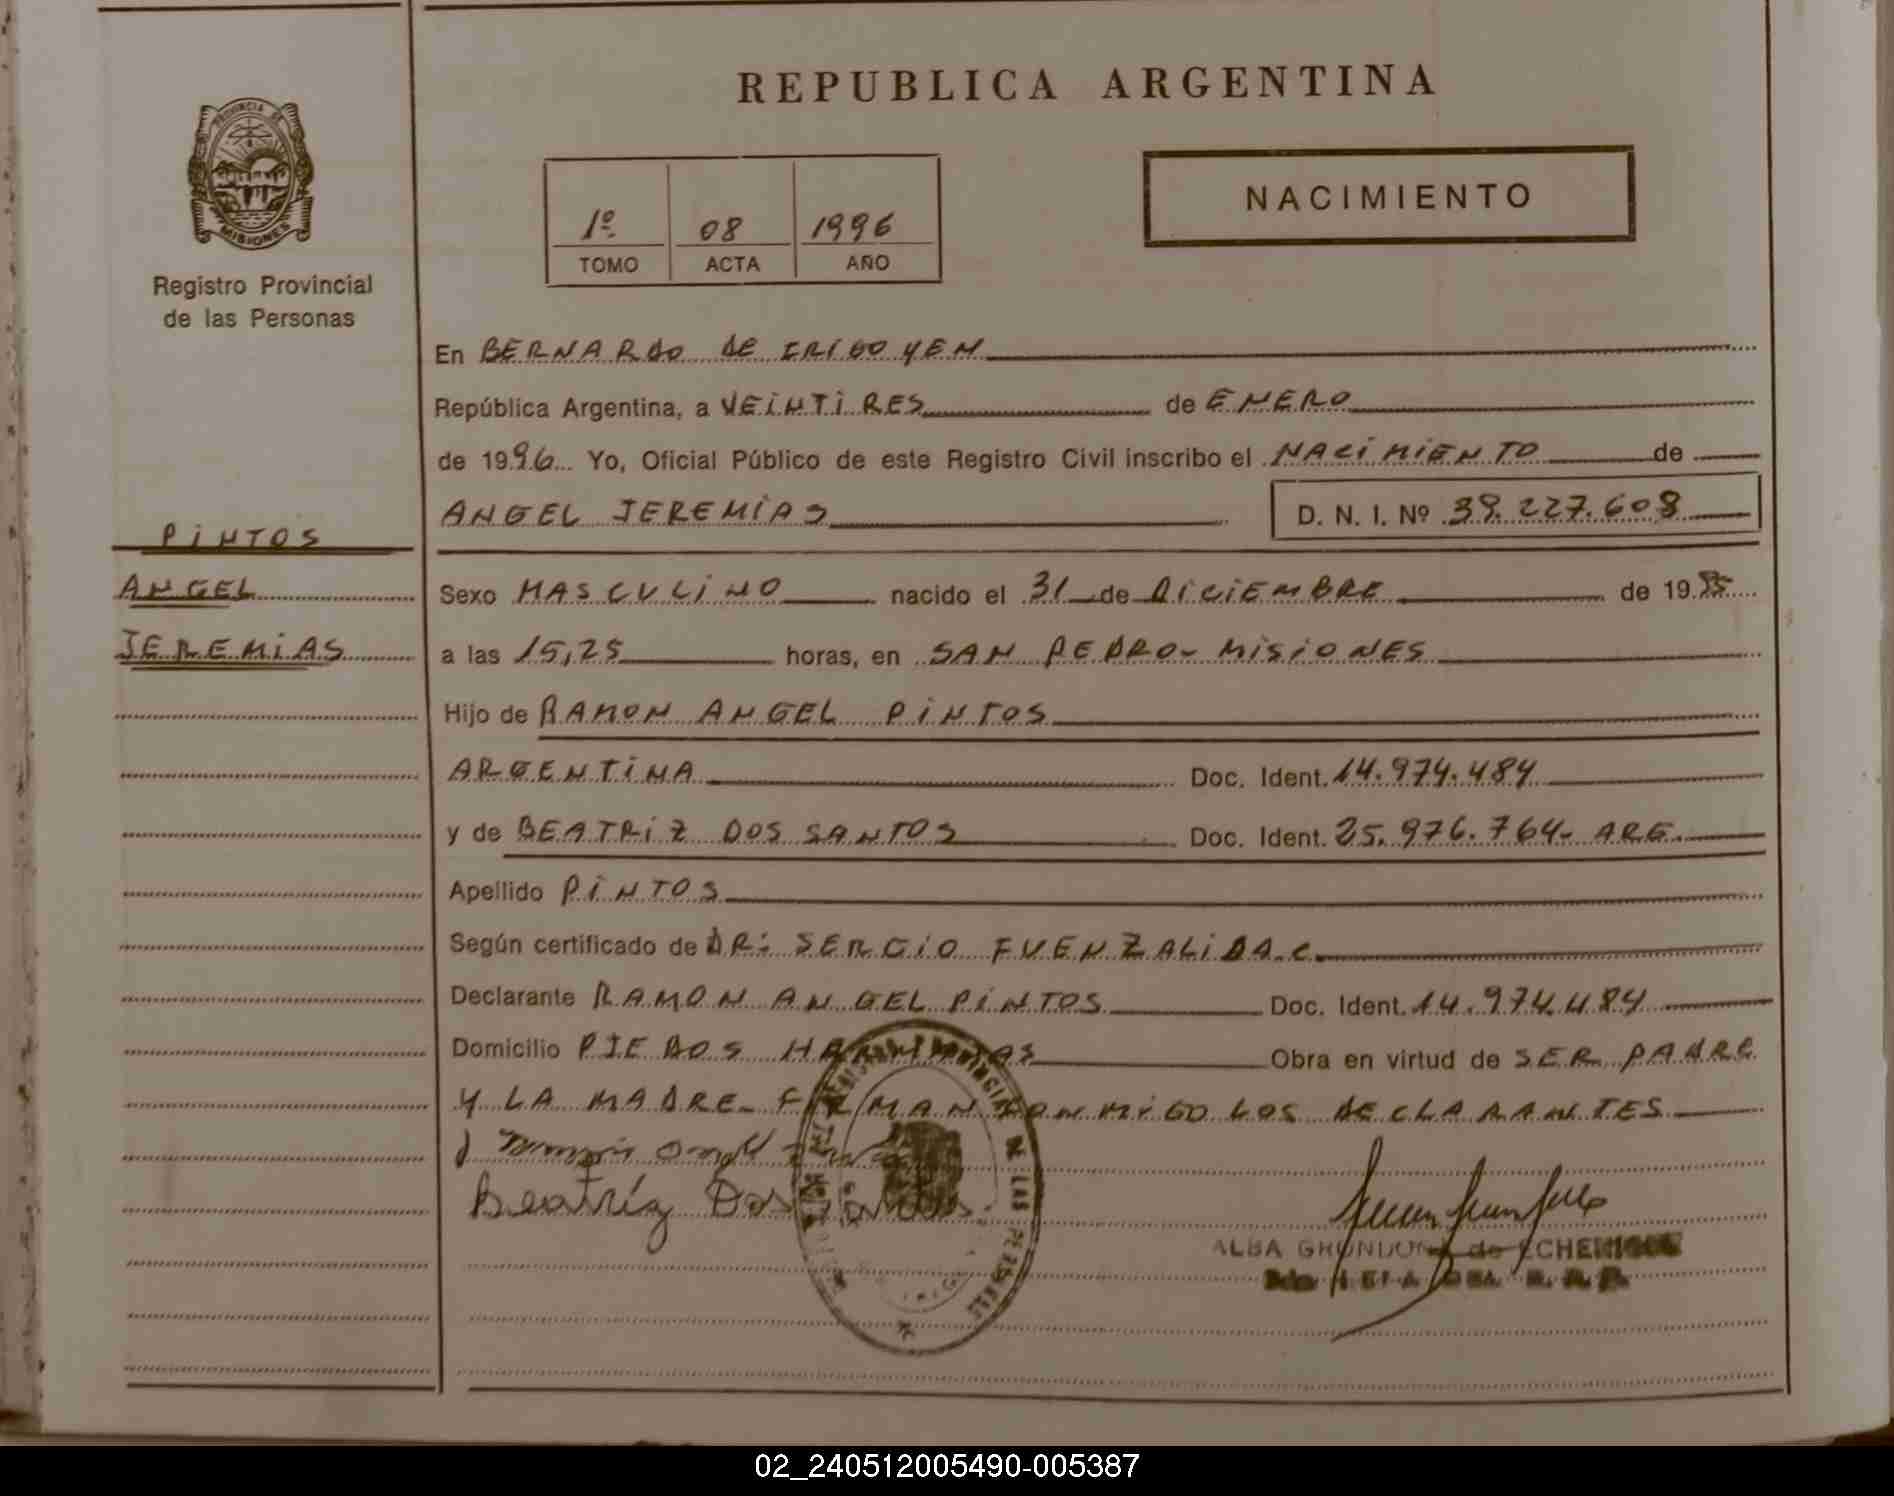 REPUBLICA ARGENTINA
PROVINCIA DE
MISIONES
Registro Provincial
de las Personas
NACIMIENTO
1º 08 1996
TOMO ACTA AÑO
En BERNARDO DE IRIGOYEN
República Argentina, a VEINTIRES de ENERO
de 1996 Yo, Oficial Público de este Registro Civil inscribo el NACIMIENTO de
ANGEL JEREMIAS D. N. I. Nº 39.227.608
PINTOS
ANGEL
JEREMIAS
Sexo MASCULINO nacido el 31 de DICIEMBRE de 1995
a las 15,25 horas, en SAN PEDRO- MISIONES
Hijo de RAMON ANGEL PINTOS
ARGENTINA Doc. Ident. 14.974.484
y de BEATRIZ DOS SANTOS Doc. Ident. 25.976.764- ARG.
Apellido PINTOS
Según certificado de DR: SERGIO FUENZALIDA.C.
Declarante RAMON ANGEL PINTOS Doc. Ident. 14.974.484
Domicilio PIEDOS Obra en virtud de SER PADRE
Y LA MADRE- FIRMAN CONMIGO LOS DECLARANTES
Beatríz Dos Santos
DE LAS PERSONAS
ALBA GRONDONA de ECHENIQUE
02_240512005490-005387